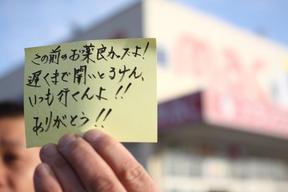 この前のお薬良カッズよ!
遅くまで開いとるけん、
いつも行くんよ!!
ありがとう!!